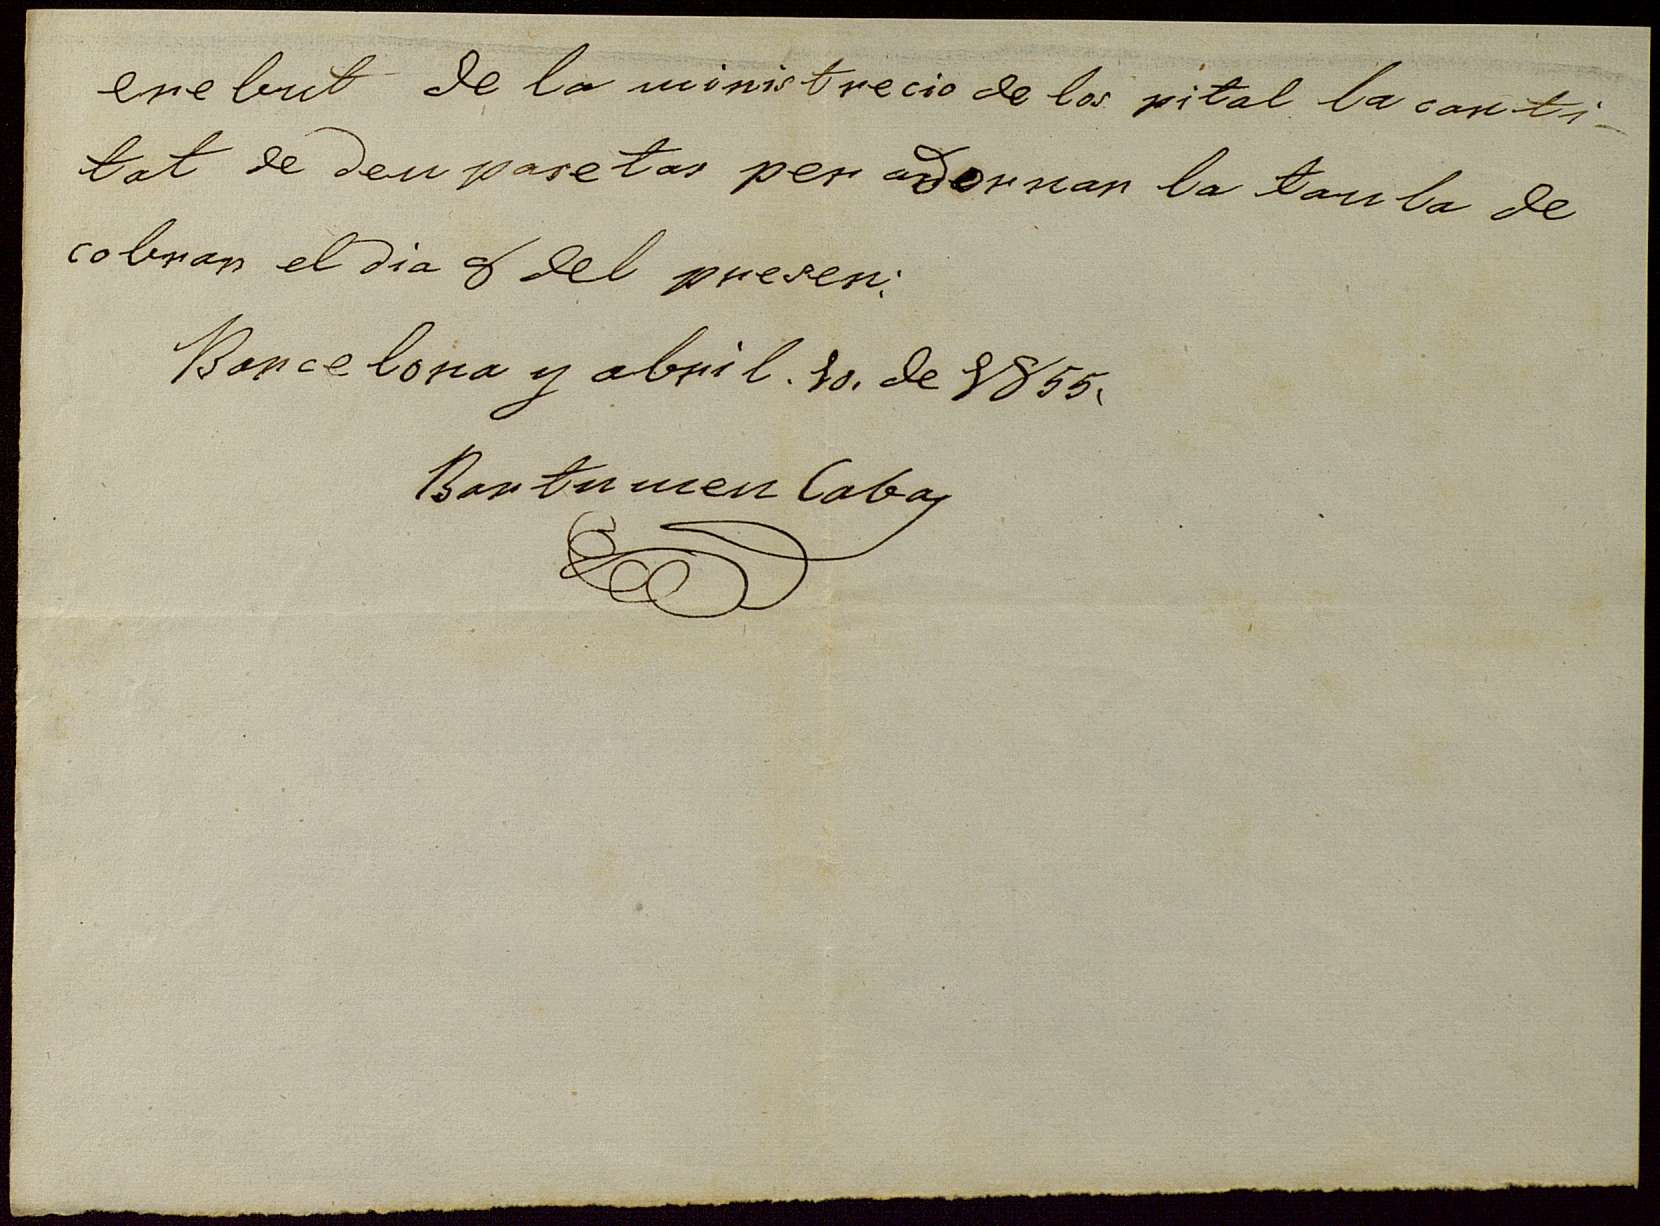 erebut de la ministrecio de los pital la canti-
tat de deu pasetas per adornar la taula de
cobrar el dia 8 del presen.
Barcelona y abril. 10. de 1855.
Bartumeu Caba